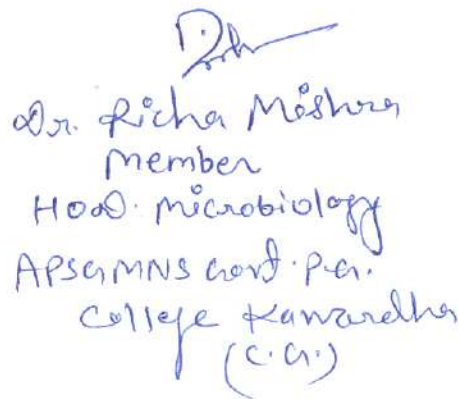 Dr. Richa Mishra
Member
HOD. Microbiology
APSGMNS Govt. P.G.
College Kawardha
(C.G.)